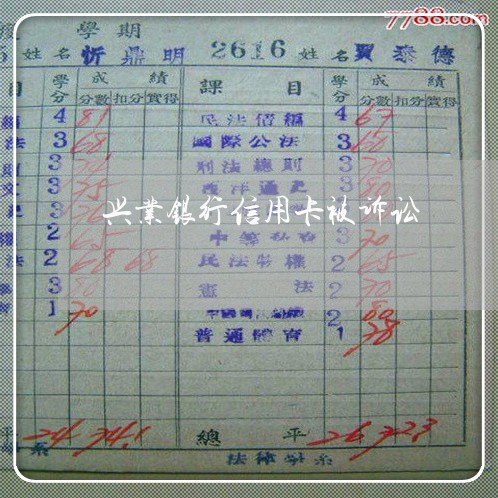 7788.com
學期
姓名 忻鼎明 2616 姓名 賈泰德
目 學分 成績 課目 學分 成績
分數 扣分 實得 分數 扣分 實得
4 81 民法債編 4 67
法 3 68 國際公法 3 60
3 刑法總則 3 70
3 75 西洋通史 3 80
3
兴業銀行信用卡被诉讼
2 65 3 70
法 2 68 68 民法物權 2 65
3 80 憲法 2 70
1 70 2 80
普通體育 1 78
平 24 74.1 總平 26 72.3
系 法律學系